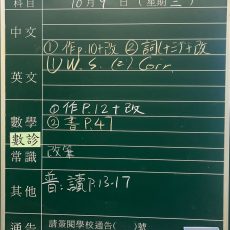 科目 10月9日(星期三)
中文
①作p.10+改 ②詞(十三)+改
英文 ①W.S. (2) Corr.
①作P.12+改
數學 ②書P.47
數診
常識 改筆
其他 普:讀P.13-17
通告 請簽閱學校通告( )號